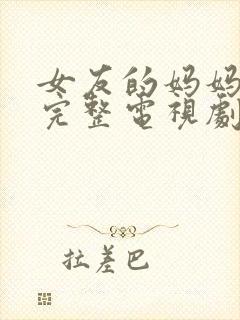 女友的妈妈
完整電視劇
拉差巴